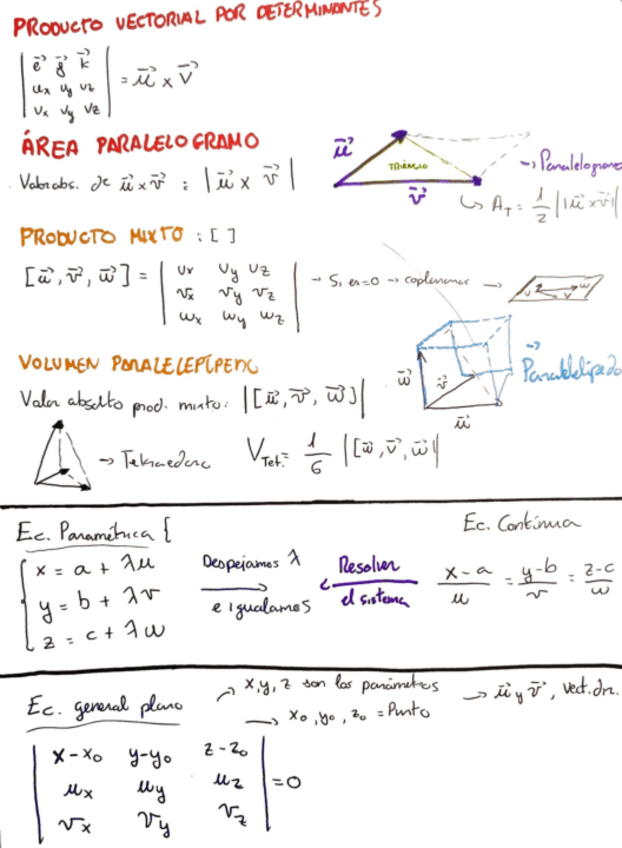 PRODUCTO VECTORIAL POR DETERMINANTES
| e⃗ g⃗ k⃗ |
| ux uy uz | = u⃗ x v⃗
| vx vy vz |
ÁREA PARALELOGRAMO
Valor abs. de u⃗ x v⃗ : | u⃗ x v⃗ |
u⃗
TRIÁNGULO
v⃗
→ Paralelogramo
↳ A_T = 1/2 | |u⃗ x v⃗| |
PRODUCTO MIXTO : [ ]
| ux uy uz |
[u⃗, v⃗, w⃗] = | vx vy vz | → Si es = 0 → coplanarios →
| wx wy wz |
u v w
VOLUMEN PARALELEPÍPEDO
Valor absolto prod. mixto: |[u⃗, v⃗, w⃗]|
w⃗ v⃗ u⃗
→ Paralelelípedo
→ Tetraedro V_Tet. = 1/6 |[u⃗, v⃗, w⃗]|
Ec. Paramétrica {
x = a + λu
y = b + λv
z = c + λw
Despejamos λ
e igualamos
Resolver
el sistema
Ec. Continua
x-a/u = y-b/v = z-c/w
Ec. general plano
→ x, y, z son los parámetros → u⃗ y v⃗, vect. dir.
→ x₀, y₀, z₀ = Punto
| x-x₀ y-y₀ z-z₀ |
| ux uy uz | = 0
| vx vy vz |